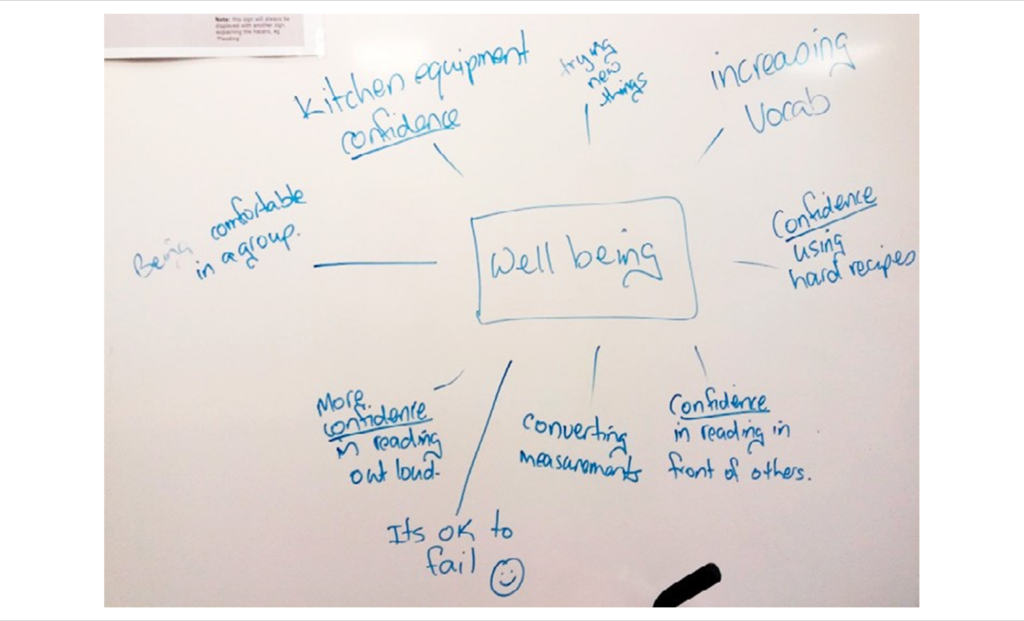 Note: this sign will always be
displayed with another sign
explaining the hazard, eg
'Flooding'
Kitchen equipment
confidence
trying
new
things
increasing
Vocab
Being comfortable
in a group.
Well being
Confidence
using
hard recipes
More
confidence
in reading
out loud.
Converting
measurements
Confidence
in reading in
front of others.
Its OK to
fail